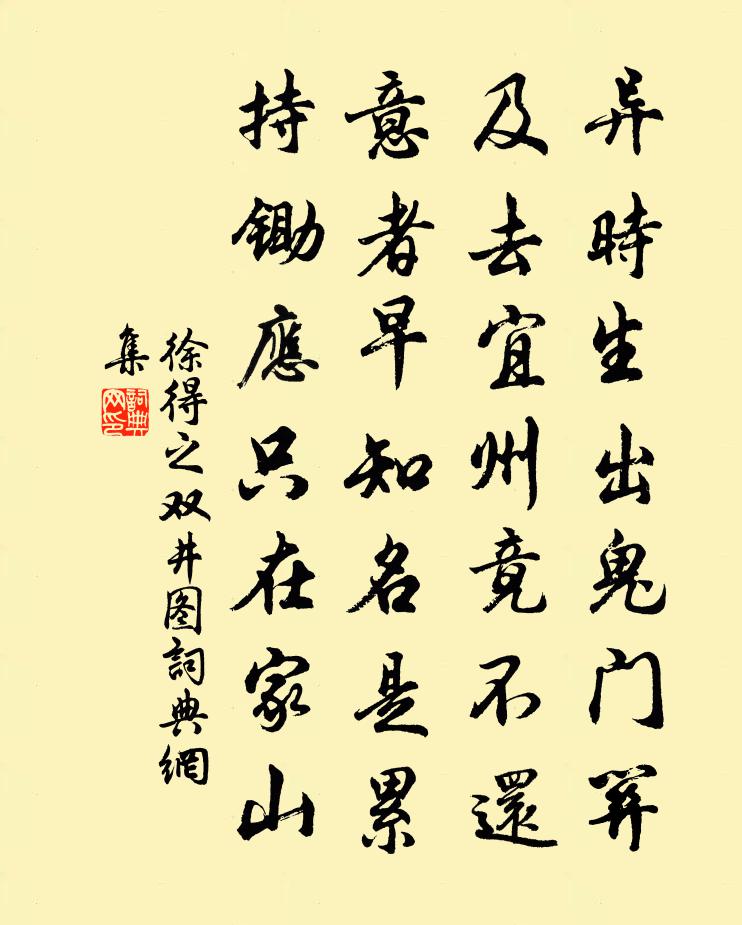 异時生出鬼门关
及去宜州竟不還
意者早知名是累
持锄應只在家山
徐得之双井图詞典網
集
詞典
网印